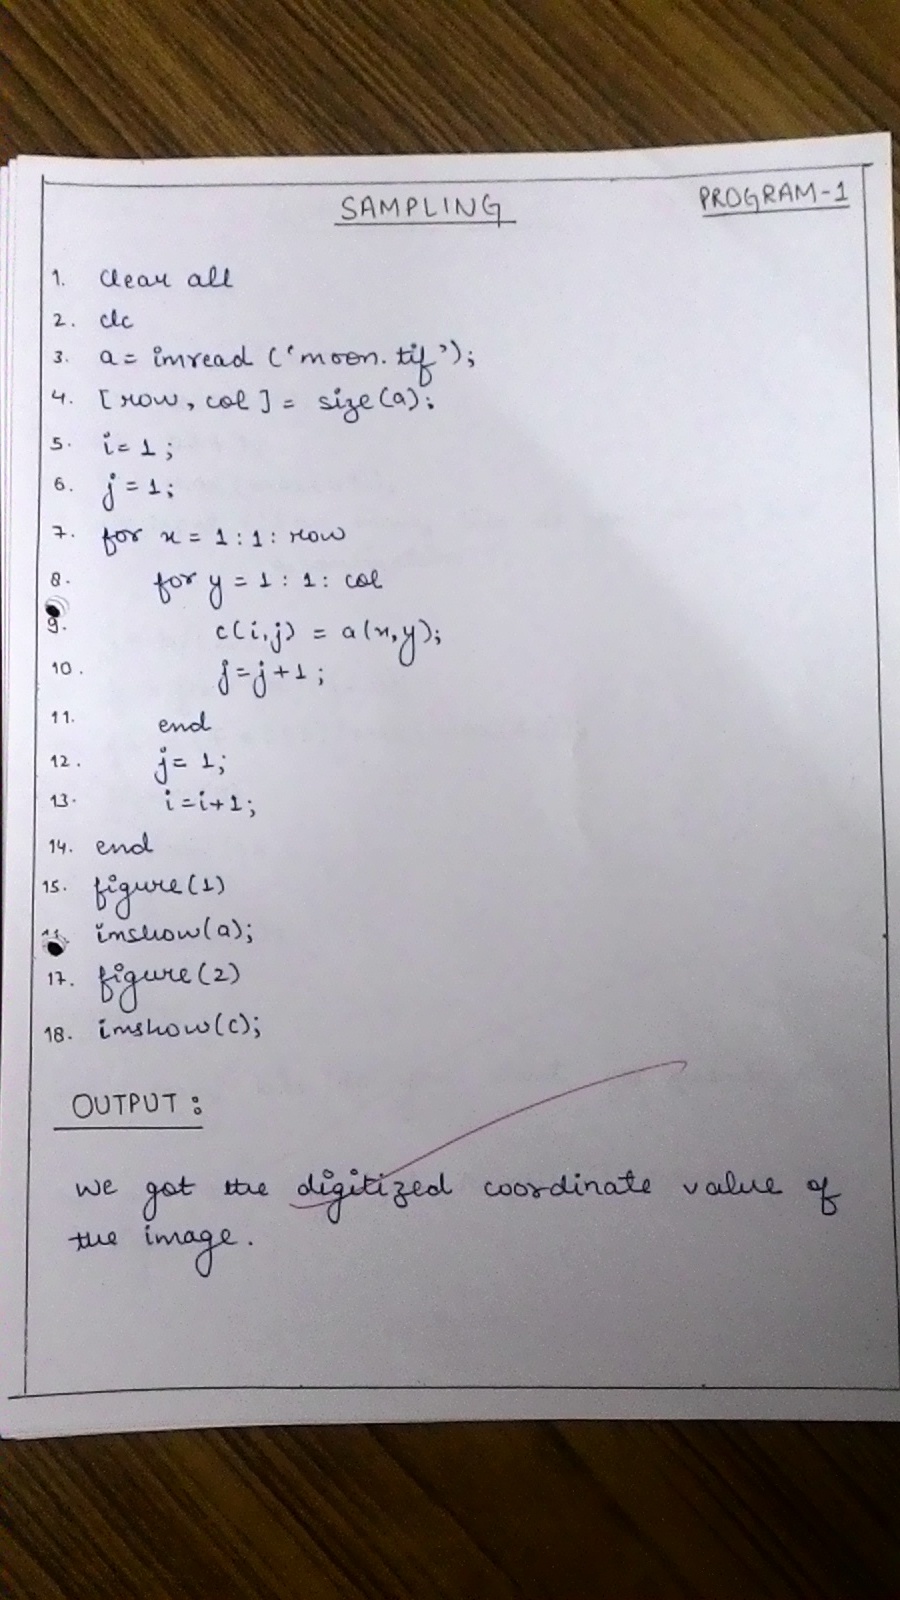 SAMPLING
PROGRAM-1
1. clear all
2. clc
3. a = imread ('moon.tif');
4. [row, col] = size(a);
5. i = 1;
6. j = 1;
7. for x = 1:1: row
8. for y = 1:1: col
9. c(i,j) = a(x,y);
10. j=j+1;
11. end
12. j= 1;
13. i=i+1;
14. end
15. figure(1)
imshow(a);
17. figure(2)
18. imshow(c);
OUTPUT:
We got the digitized coordinate value of
the image.